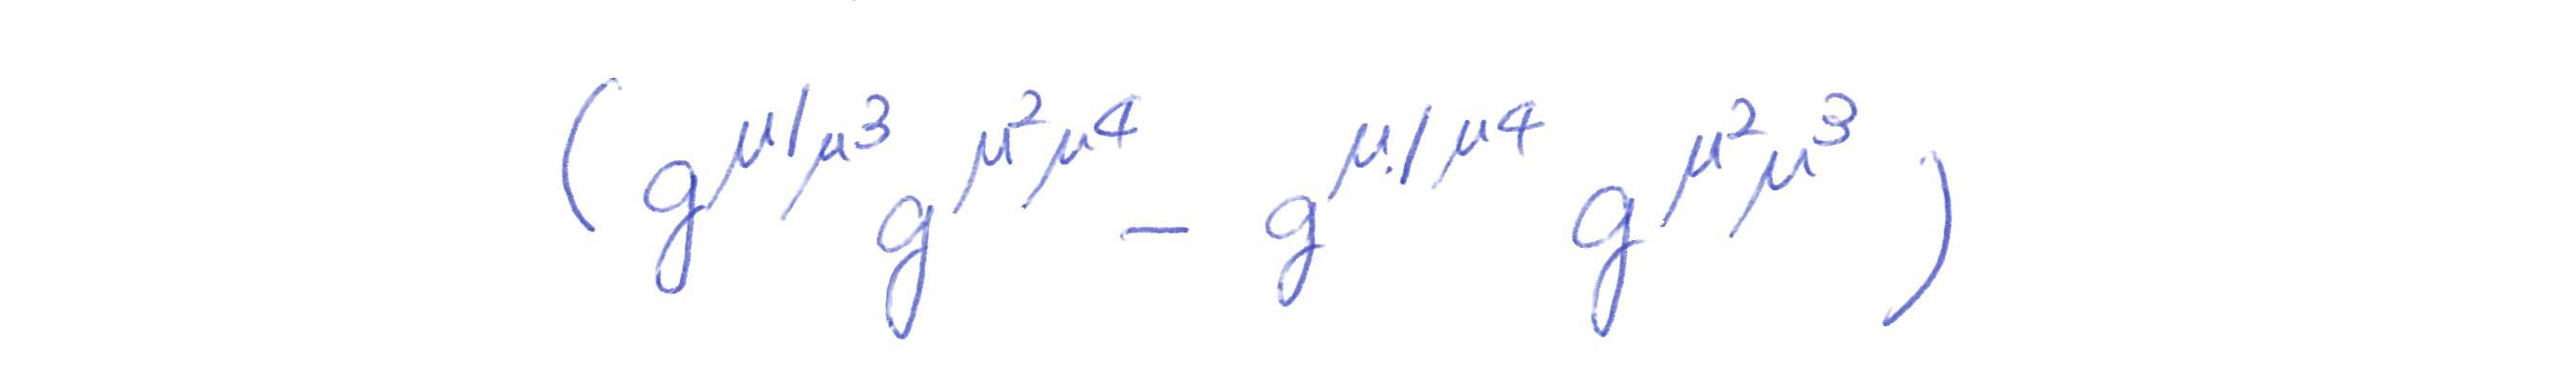 (g^{μ1μ3}g^{μ2μ4} - g^{μ1μ4} g^{μ2μ3})